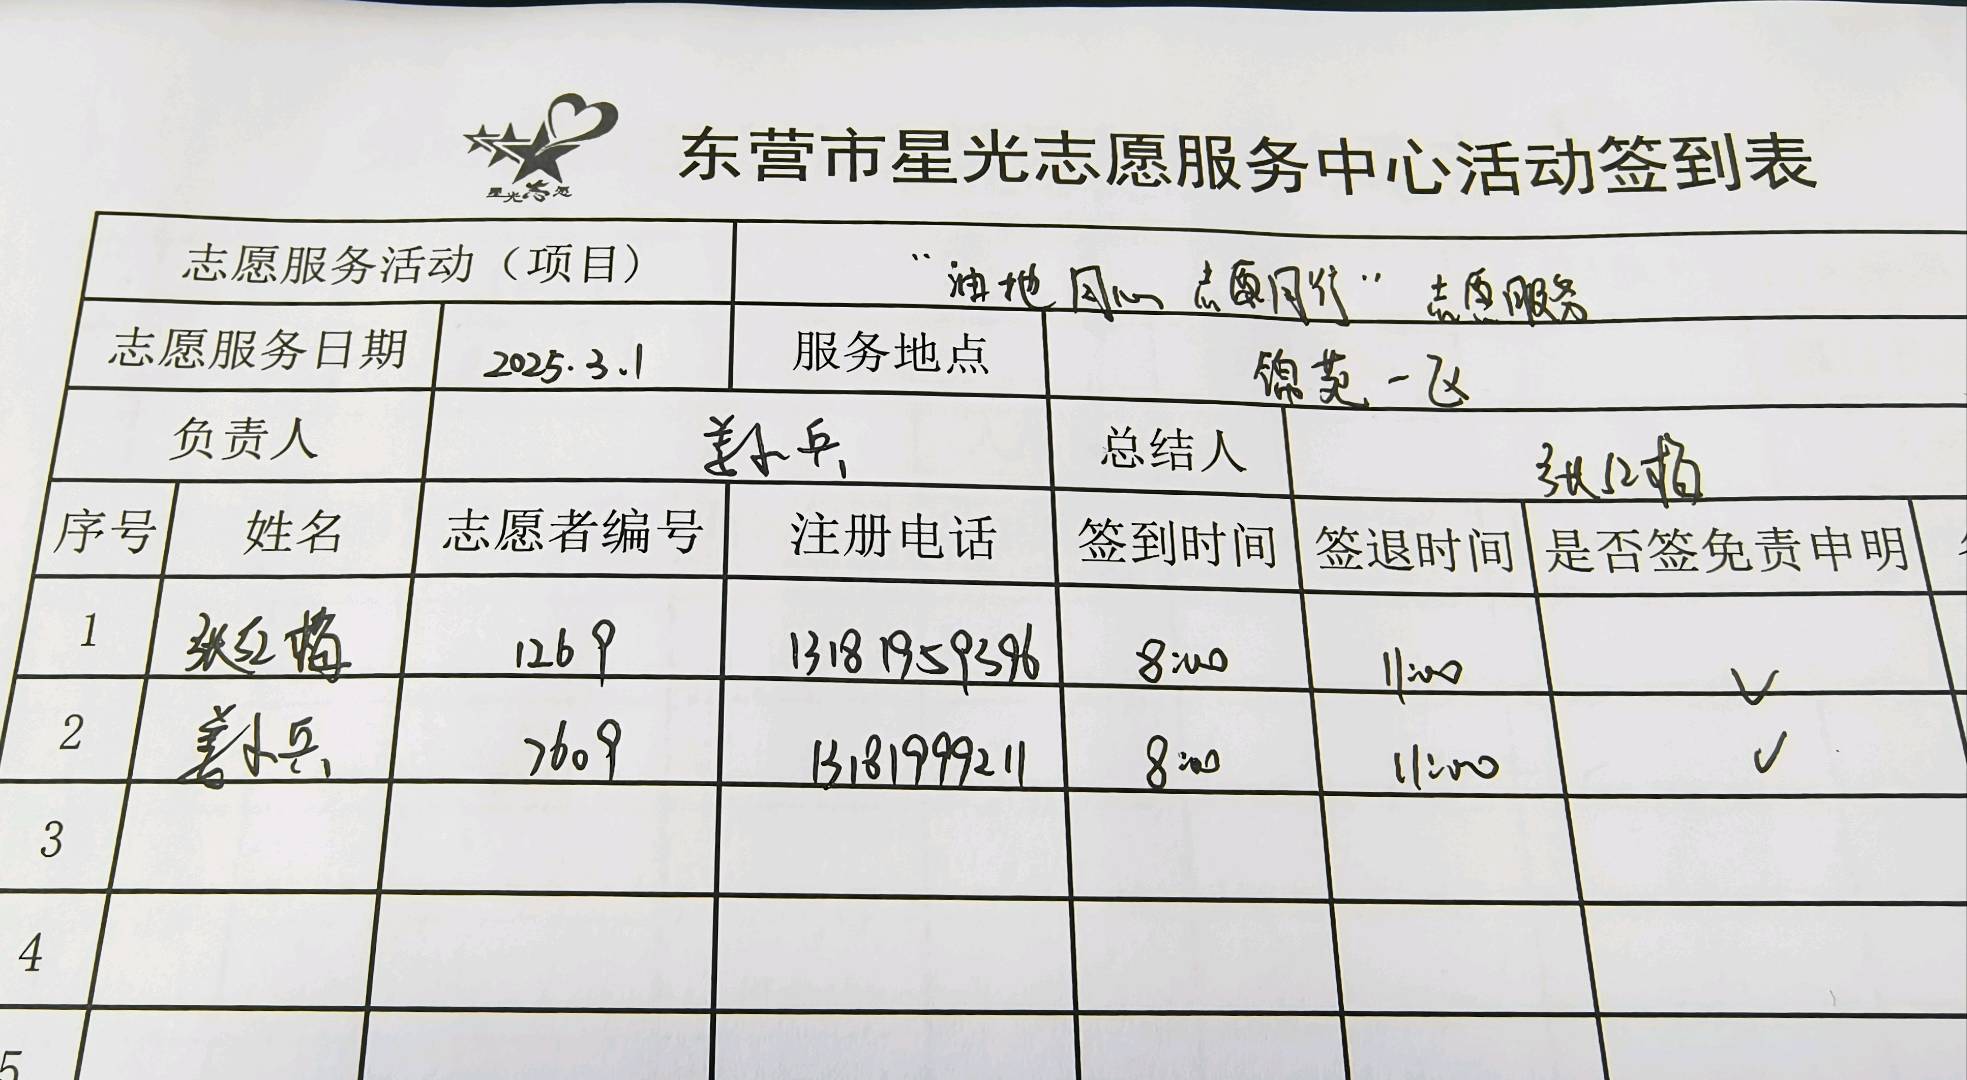 星光志愿
东营市星光志愿服务中心活动签到表
志愿服务活动（项目） “油地同心 志愿同行”志愿服务
志愿服务日期 2025.3.1 服务地点 锦苑一区
负责人 姜小兵 总结人 张红梅
序号 姓名 志愿者编号 注册电话 签到时间 签退时间 是否签免责申明
1 张红梅 1269 13181959396 8:00 11:00 ✓
2 姜小兵 7609 13181999211 8:00 11:00 ✓
3
4
5